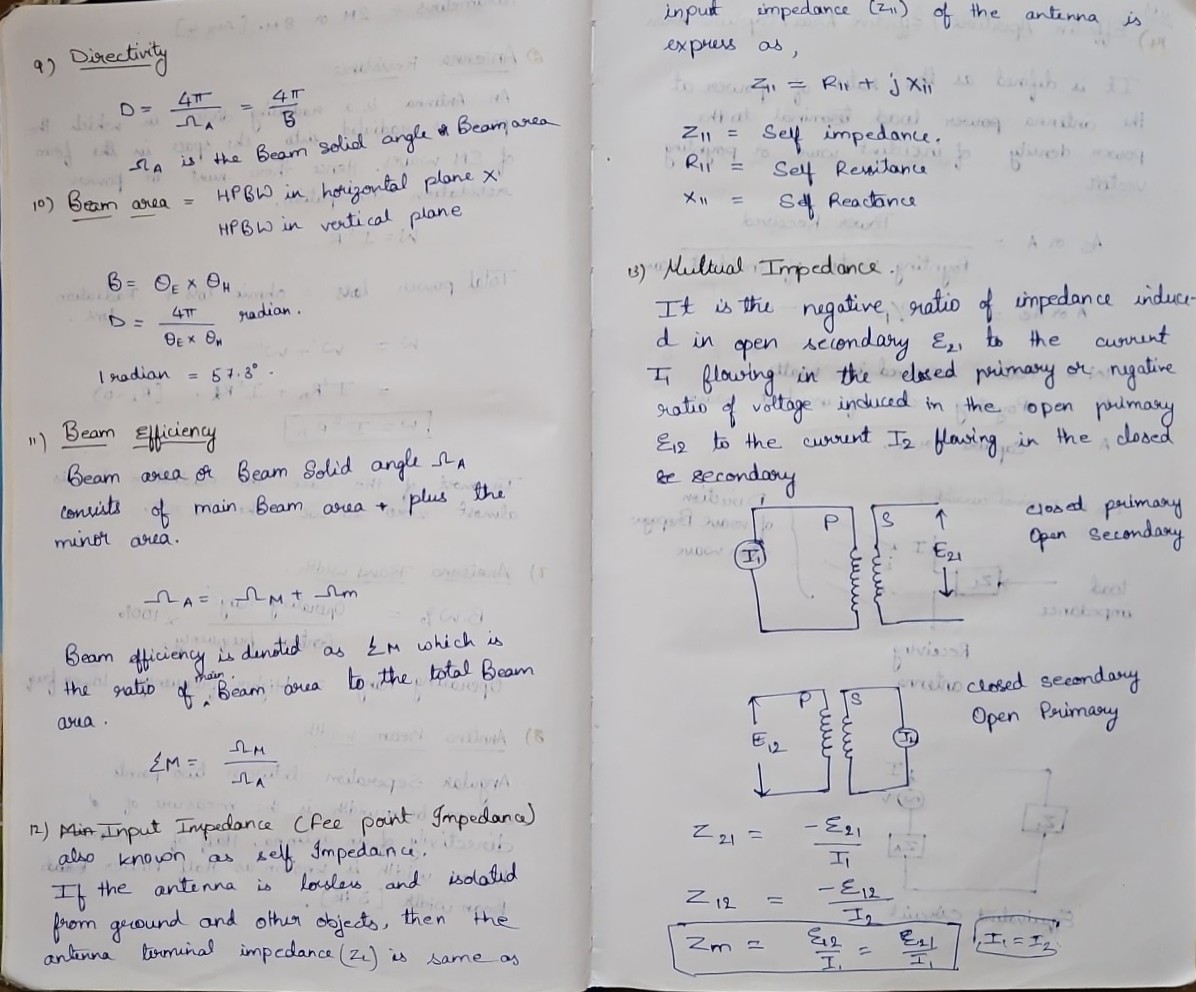 9) Directivity
D = 4π/ΩA = 4π/B
ΩA is the Beam solid angle & Beam area
10) Beam area = HPBW in horizontal plane x
HPBW in vertical plane
B = ΘE x ΘH
D = 4π/ΘE x ΘH radian.
1 radian = 57.3°.
11) Beam Efficiency
Beam area or Beam Solid angle ΩA
consists of main Beam area + plus the
minor area.
ΩA = ΩM + Ωm
Beam efficiency is denoted as ƐM which is
the ratio of main Beam area to the total Beam
area.
ƐM = ΩM/ΩA
12) Input Impedance (Fee point Impedance)
also known as self Impedance.
If the antenna is lossless and isolated
from ground and other objects, then the
antenna terminal impedance (ZL) is same as
input impedance (Z11) of the antenna is
express as,
Z11 = R11 + j X11
Z11 = Self impedance.
R11 = Self Resistance
X11 = Self Reactance
13) Multual Impedance.
It is the negative ratio of impedance induce-
d in open secondary Ɛ21 to the current
I1 flowing in the closed primary or negative
ratio of voltage induced in the open primary
Ɛ12 to the current I2 flowing in the closed
secondary
I1 P S E21
closed primary
Open Secondary
E12 P S I2
closed secondary
Open Primary
Z21 = -Ɛ21/I1
Z12 = -Ɛ12/I2
Zm = Ɛ12/I1 = Ɛ21/I1 I1 = I2